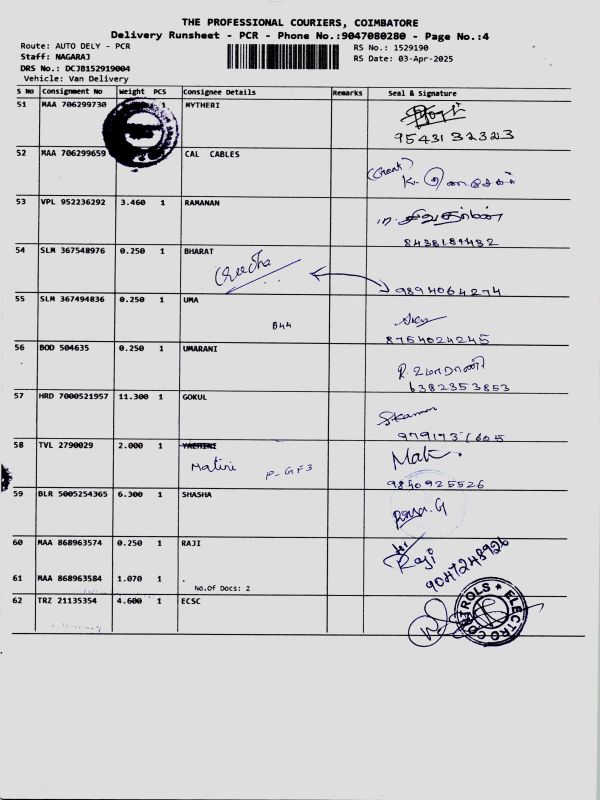 THE PROFESSIONAL COURIERS, COIMBATORE
Delivery Runsheet - PCR - Phone No.:9047080280 - Page No.:4
Route: AUTO DELY - PCR
RS No.: 1529190
Staff: NAGARAJ
RS Date: 03-Apr-2025
DRS No.: DCJB152919004
Vehicle: Van Delivery
S No Consignment No Weight PCS Consignee Details Remarks Seal & Signature
51 MAA 706299730 1 MYTHERI
9543132323
52 MAA 706299659 CAL CABLES
53 VPL 952236292 3.460 1 RAMANAN
8438189482
54 SLM 367548976 0.250 1 BHARAT
9894064274
55 SLM 367494836 0.250 1 UMA
B44
8754024245
56 BOD 504635 0.250 1 UMARANI
R. உமாராணி
6382353853
57 HRD 7000521957 11.300 1 GOKUL
58 TVL 2790029 2.000 1
Matini P-GF3
9840925526
59 BLR 5005254365 6.300 1 SHASHA
60 MAA 868963574 0.250 1 RAJI
for
Raji
9047248926
61 MAA 868963584 1.070 1 .
No.Of Docs: 2
62 TRZ 21135354 4.600 1 ECSC
ELECTRO CONTROLS